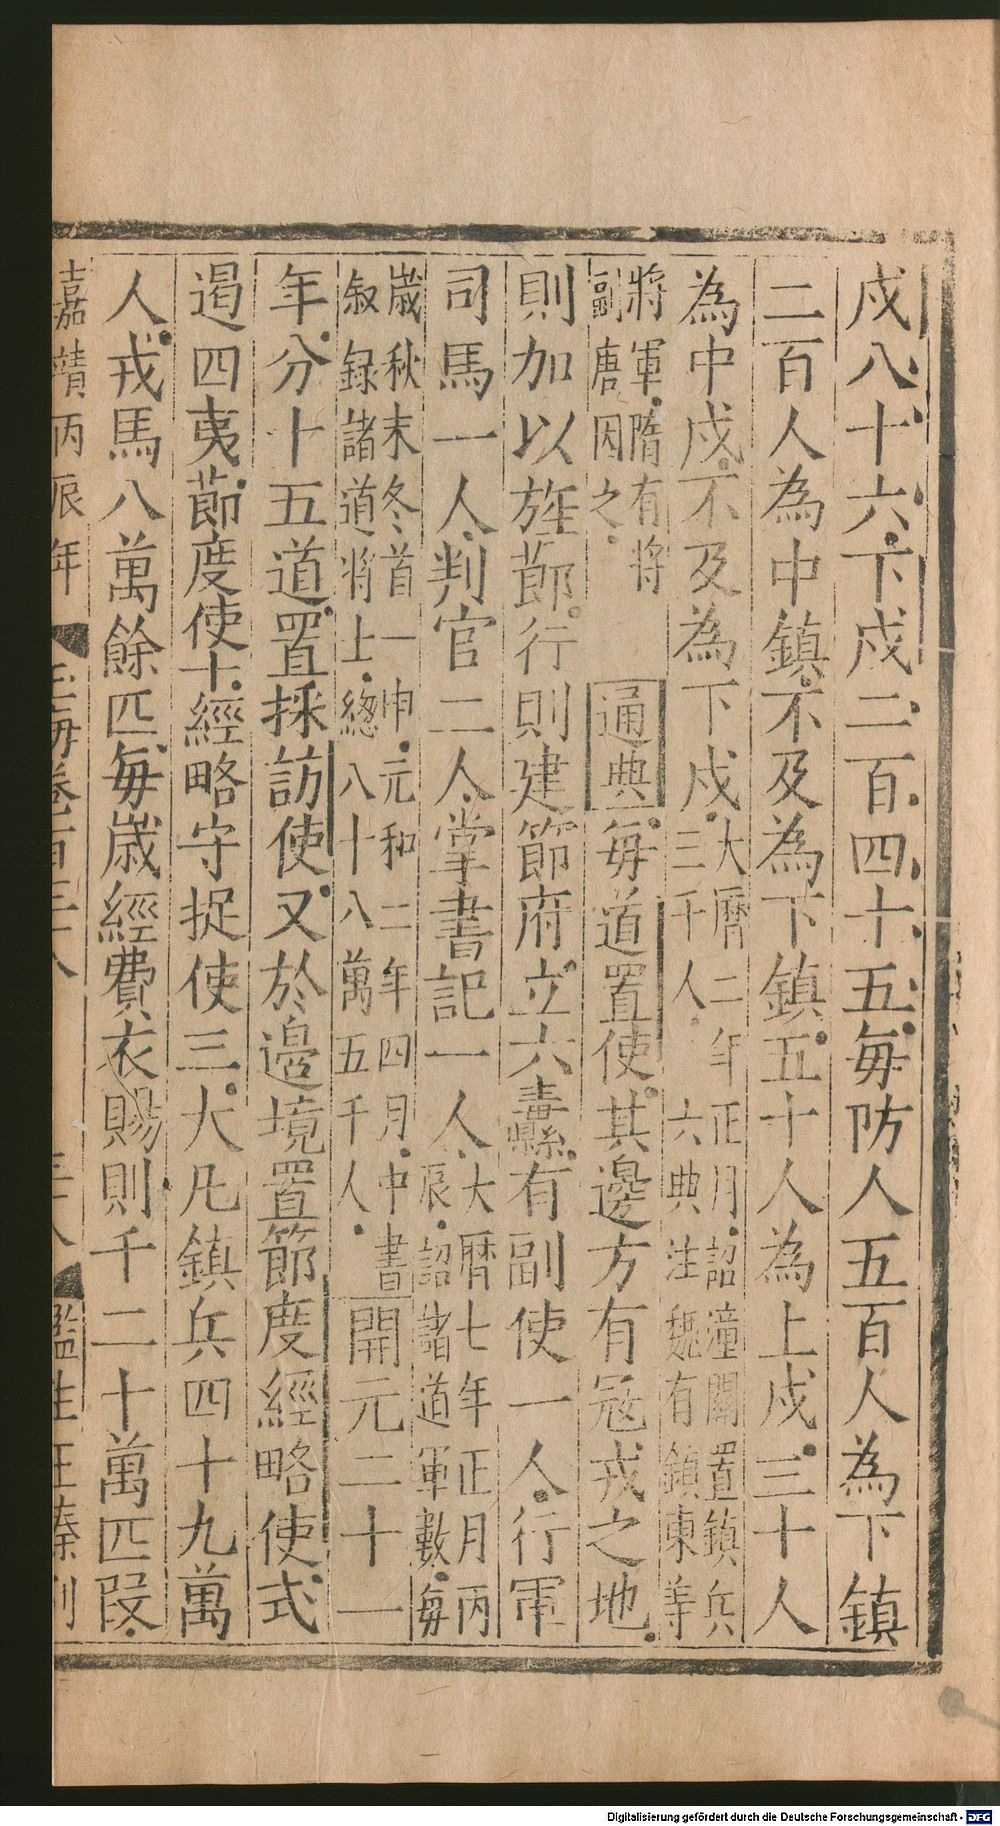 戍八十六下戍二百四十五每防人五百人為下鎮
二百人為中鎮不及為下鎮五十人為上戍三十人
為中戍不及為下戍大曆二年正月詔潼關置鎮兵三千人六典注魏有鎮東等
將軍隋有將副唐因之通典每道置使其邊方有冦戎之地
則加以旌節行則建節府立六纛有副使一人行軍
司馬一人判官二人掌書記一人大曆七年正月丙辰詔諸道軍數每
嵗秋末冬首一申元和二年四月中書叙録諸道將上緫八十八萬五千人開元二十一
年分十五道置採訪使又於邊境置節度經略使式
遏四夷節度使十經略守捉使三大凡鎮兵四十九萬
人戎馬八萬餘匹每嵗經費衣賜則千二十萬匹段
嘉靖丙辰年 玉海卷百三十八 三十八 監生王秦刊
Digitalisierung gefördert durch die Deutsche Forschungsgemeinschaft - DFG